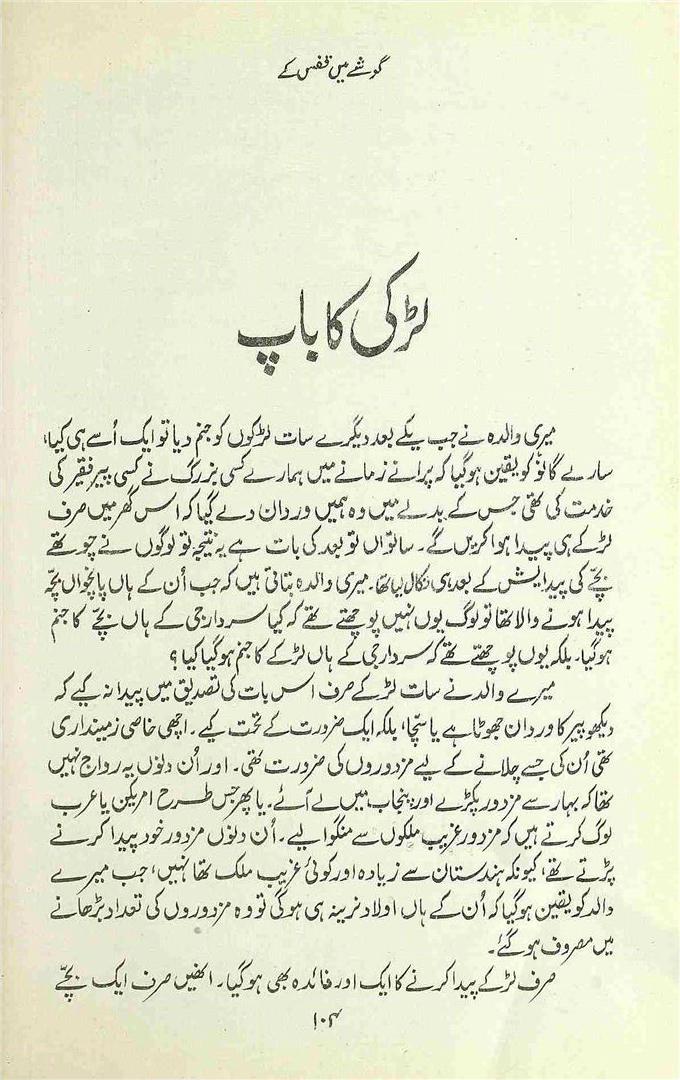 گوشے میں قفس کے
لڑکی کا باپ
میری والدہ نے جب یکے بعد دیگرے سات لڑکوں کو جنم دیا تو ایک اُسے ہی کیا،
سارے گانوٗ کو یقین ہوگیا کہ پرانے زمانے میں ہمارے کسی بزرگ نے کسی پیر فقیر کی
خدمت کی تھی جس کے بدلے میں وہ ہمیں وردان دے گیا کہ اس گھر میں صرف
لڑکے ہی پیدا ہوا کریں گے۔ ساتواں تو بعد کی بات ہے یہ نتیجہ تو لوگوں نے چوتھے
بچّے کی پیدایش کے بعد ہی نکال لیا تھا۔ میری والدہ بتاتی ہیں کہ جب اُن کے ہاں پانچواں بچّہ
پیدا ہونے والا تھا تو لوگ یوں نہیں پوچھتے تھے کہ کیا سردار جی کے ہاں بچّے کا جنم
ہوگیا۔ بلکہ یوں پوچھتے تھے کہ سردار جی کے ہاں لڑکے کا جنم ہوگیا کیا؟
میرے والد نے سات لڑکے صرف اس بات کی تصدیق میں پیدا نہ کیے کہ
دیکھو پیر کا وردان جھوٹا ہے یا سچّا، بلکہ ایک ضرورت کے تحت کیے۔ اچھی خاصی زمینداری
تھی اُن کی جسے چلانے کے لیے مزدوروں کی ضرورت تھی۔ اور اُن دنوں یہ رواج نہیں
تھا کہ بہار سے مزدور پکڑے اور پنجاب میں لے آئے۔ یا پھر جس طرح امریکن یا عرب
لوگ کرتے ہیں کہ مزدور غریب ملکوں سے منگوا لیے۔ اُن دنوں مزدور خود پیدا کرنے
پڑتے تھے، کیونکہ ہندستان سے زیادہ اور کوئی غریب ملک تھا نہیں، جب میرے
والد کو یقین ہوگیا کہ اُن کے ہاں اولادِ نرینہ ہی ہوگی تو وہ مزدوروں کی تعداد بڑھانے
میں مصروف ہوگئے۔
صرف لڑکے پیدا کرنے کا ایک اور فائدہ بھی ہوگیا۔ انھیں صرف ایک بچّے
۱۰۴